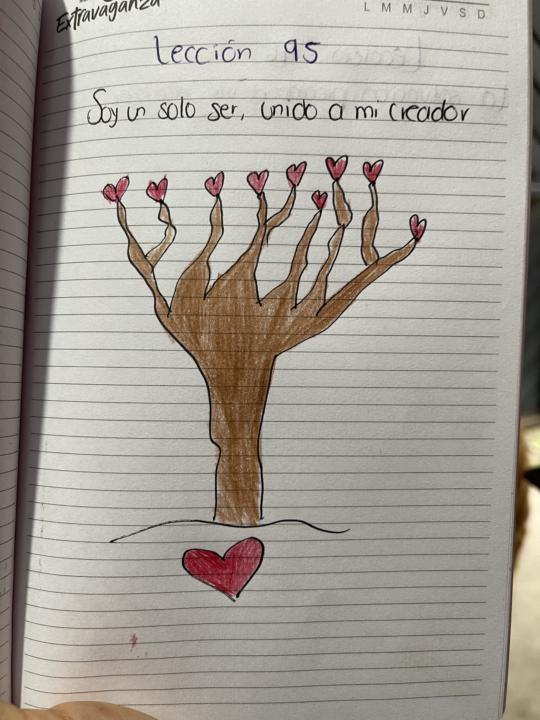 Extravaganza
L M M J V S D
Lección 95
Soy un solo ser, unido a mi creador